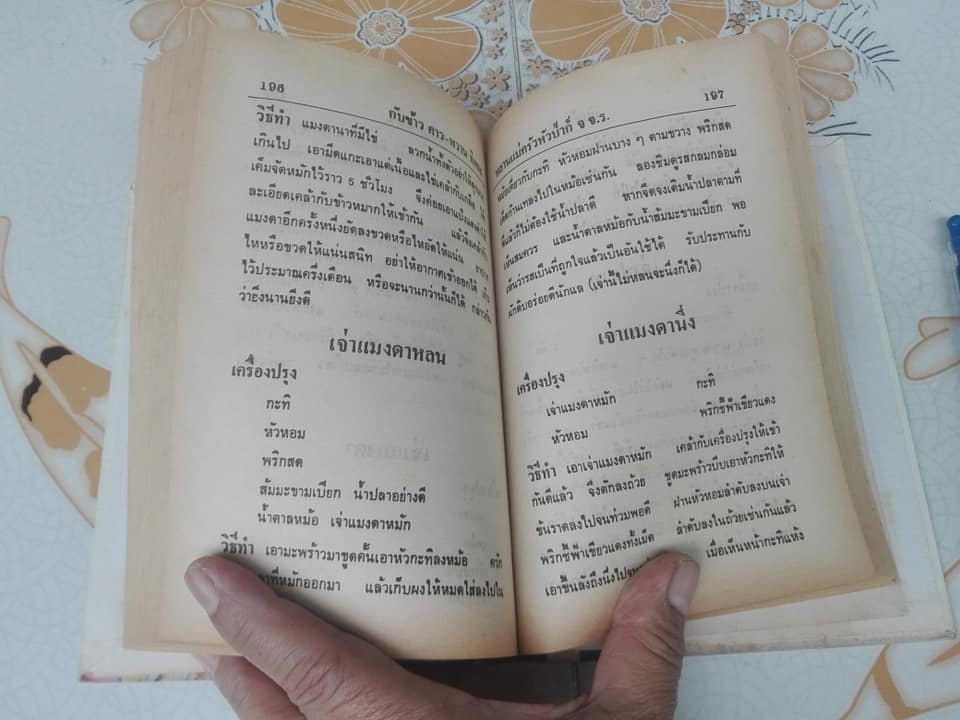 196
กับข้าว คาว-หวาน
วิธีทำ แมงดานาที่มีไข่ ลวกน้ำทิ้งตัวอย่าให้สุก
เกินไป เอามีดแกะเอาแต่เนื้อและไข่เคล้ากับเกลือ
เค็มจัดหมักไว้ราว 5 ชั่วโมง จึงค่อยเอา
ละเอียดเคล้ากับข้าวหมากให้เข้ากัน แล้วจึง
แมงดาอีกครั้งหนึ่งยัดลงขวดหรือไหอัดให้แน่น
ไหหรือขวดให้แน่นสนิท อย่าให้อากาศเข้าออกได้
ไว้ประมาณครึ่งเดือน หรือจะนานกว่านั้นก็ได้
ว่ายิ่งนานยิ่งดี
เจ่าแมงดาหลน
เครื่องปรุง
กะทิ
หัวหอม
พริกสด
ส้มมะขามเปียก น้ำปลาอย่างดี
น้ำตาลหม้อ เจ่าแมงดาหมัก
วิธีทำ เอามะพร้าวมาขูดคั้นเอาหัวกะทิลงหม้อ ควัก
ที่หมักออกมา แล้วเก็บผงให้หมดใส่ลงไปใน
197
หลานแม่ครัวหัวป่าก์ จ.จ.ร.
หม้อเดียวกับกะทิ หัวหอมฝานบาง ๆ ตามขวาง พริกสด
เด็ดก้านเทลงไปในหม้อเช่นกัน ลองชิมดูรสกลมกล่อม
ดีแล้วก็ไม่ต้องใช้น้ำปลาดี หากจืดจงเติมน้ำปลาตามที่
เห็นสมควร และน้ำตาลหม้อกับน้ำส้มมะขามเปียก พอ
เห็นว่ารสเป็นที่ถูกใจแล้วเป็นอันใช้ได้ รับประทานกับ
ผักดิบอร่อยดีนักแล (เจ่านี้ไม่หลนจะนึ่งก็ได้)
เจ่าแมงดานึ่ง
เครื่องปรุง
เจ่าแมงดาหมัก กะทิ
หัวหอม พริกชี้ฟ้าเขียวแดง
วิธีทำ เอาเจ่าแมงดาหมัก เคล้ากับเครื่องปรุงให้เข้า
กันดีแล้ว จึงตักลงถ้วย ขูดมะพร้าวบีบเอาหัวกะทิให้
ข้นราดลงไปจนท่วมพอดี ฝานหัวหอมลำดับลงบนเจ่า
พริกชี้ฟ้าเขียวแดงทั้งเม็ด ลำดับลงในถ้วยเช่นกันแล้ว
เอาขึ้นลังถึงนึ่งไป เมื่อเห็นหน้ากะทิแห้ง